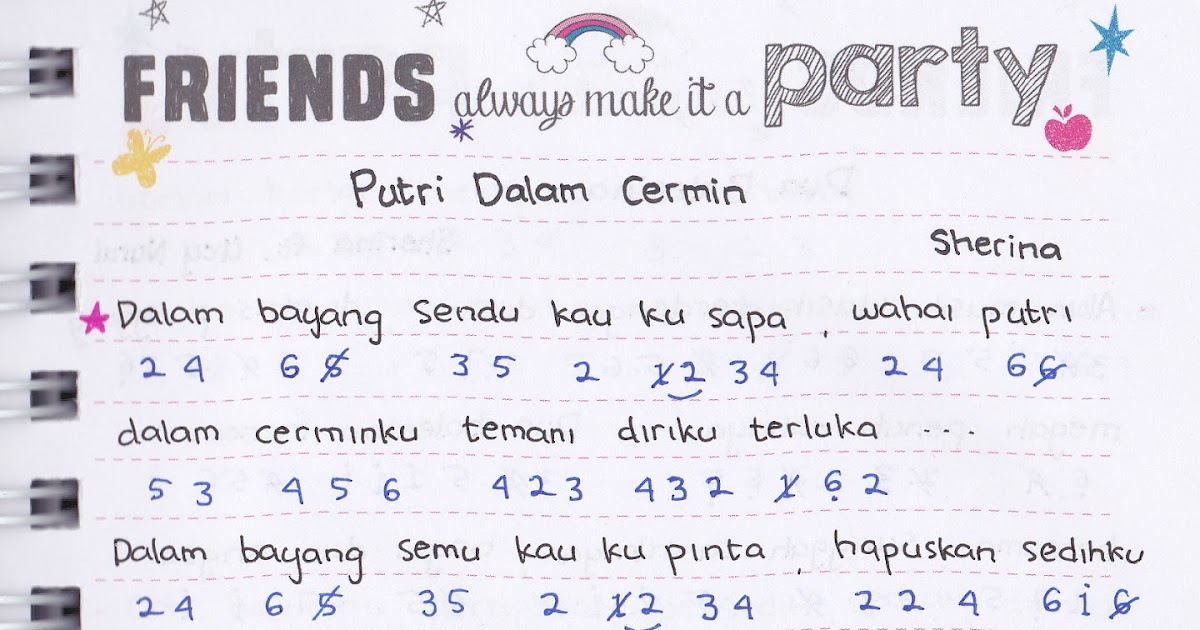 FRIENDS always make it a party
Putri Dalam Cermin
Sherina
Dalam bayang sendu kau ku sapa, wahai putri
2 4 6 5̸ 3 5 2 1̸ 2 3 4 2 4 6 6̸
dalam cerminku temani diriku terluka ....
5 3 4 5 6 4 2 3 4 3 2 1̸ 6̣ 2
Dalam bayang semu kau ku pinta, hapuskan sedihku
2 4 6 5̸ 3 5 2 1̸ 2 3 4 2 2 4 6 i 6̸